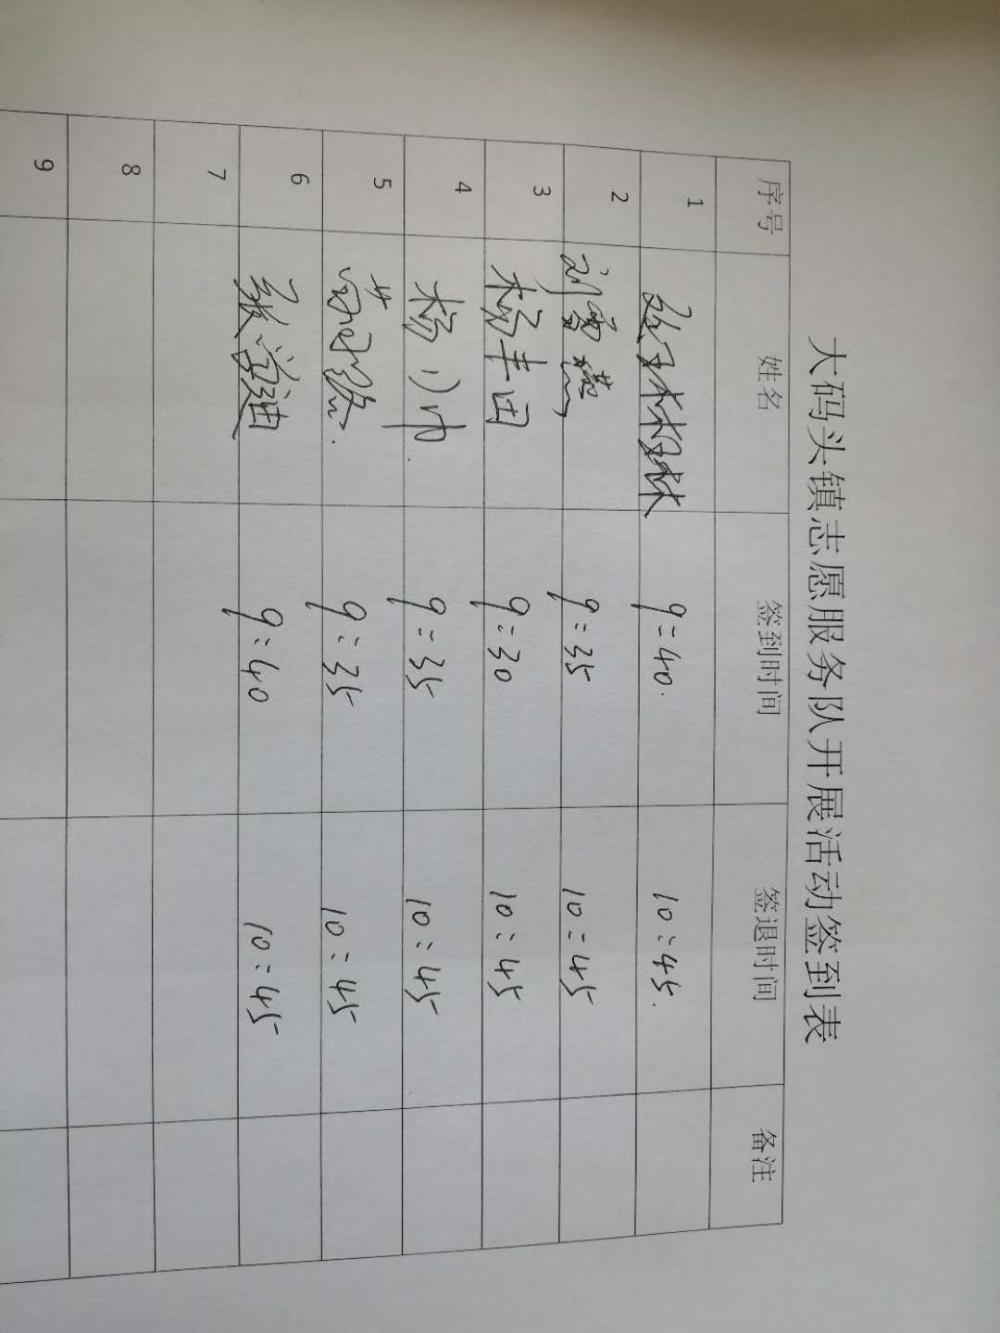 大码头镇志愿服务队开展活动签到表
序号 姓名 签到时间 签退时间 备注
1 9:40 10:45
2 刘雪燕 9:35 10:45
3 杨丰田 9:30 10:45
4 杨小帅 9:35 10:45
5 9:35 10:45
6 张学迪 9:40 10:45
7
8
9